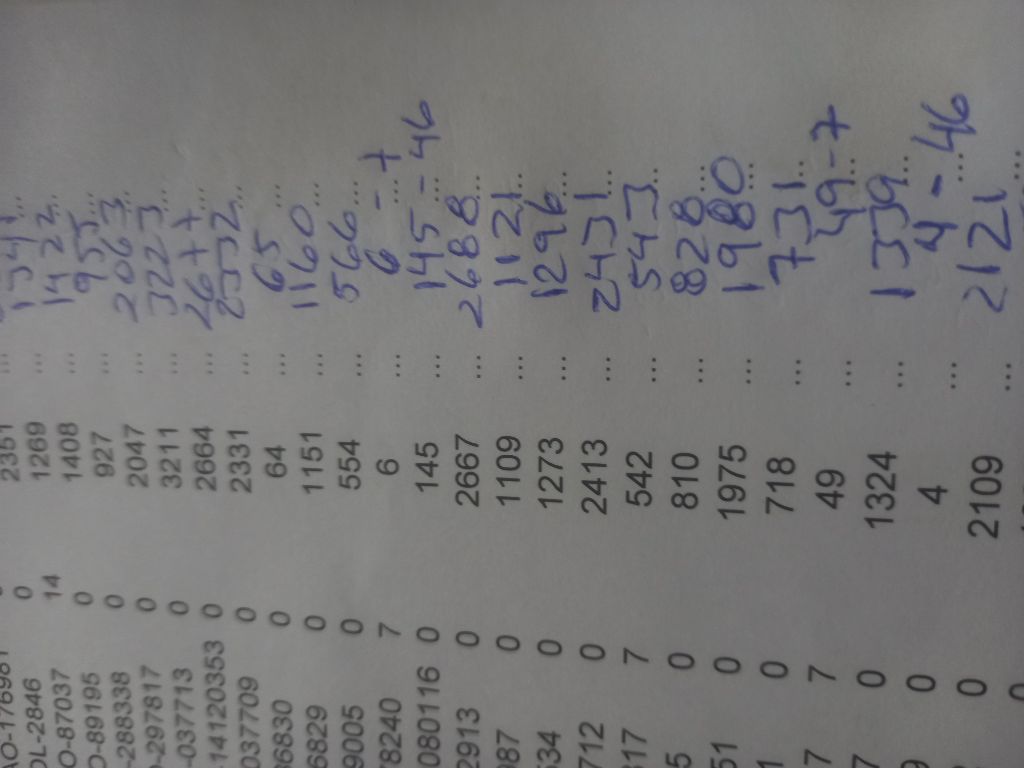 DL-2846 0 2351 ...
O-87037 14 1269 ... 1341 ...
O-89195 0 1408 ... 1422 ...
-288338 0 927 ... 955 ...
-297817 0 2047 ... 2063 ...
-037713 0 3211 ... 3223 ...
14120353 0 2664 ... 2677 ...
037709 0 2331 ... ...
06830 0 64 ... 65 ...
6829 0 1151 ... 1160 ...
9005 0 554 ... 566 ...
78240 7 6 ... 6 - 7 ...
080116 0 145 ... 145 - 46 ...
2913 0 2667 ... 2688 ...
087 0 1109 ... 1121 ...
534 0 1273 ... 1296 ...
712 0 2413 ... 2431 ...
317 7 542 ... 543 ...
5 0 810 ... 828 ...
51 0 1975 ... 1980 ...
1 0 718 ... 731 ...
7 7 49 ... 49 - 7 ...
7 0 1324 ... 1339 ...
9 0 4 ... 4 - 46 ...
0 2109 ... 2121 ...